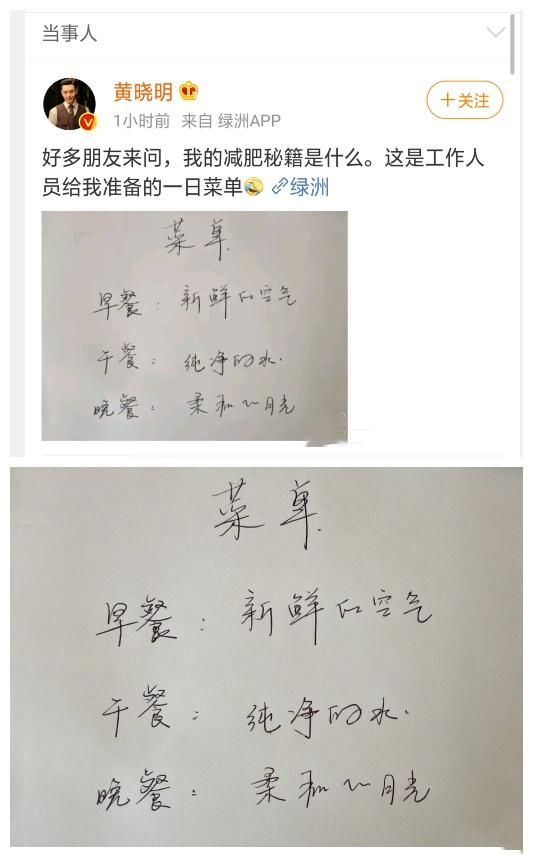 当事人
黄晓明
1小时前 来自 绿洲APP
+关注
好多朋友来问，我的减肥秘籍是什么。这是工作人
员给我准备的一日菜单 绿洲
菜单
早餐：新鲜的空气
午餐：纯净的水.
晚餐：柔和的月光
菜单
早餐：新鲜的空气
午餐：纯净的水.
晚餐：柔和的月光